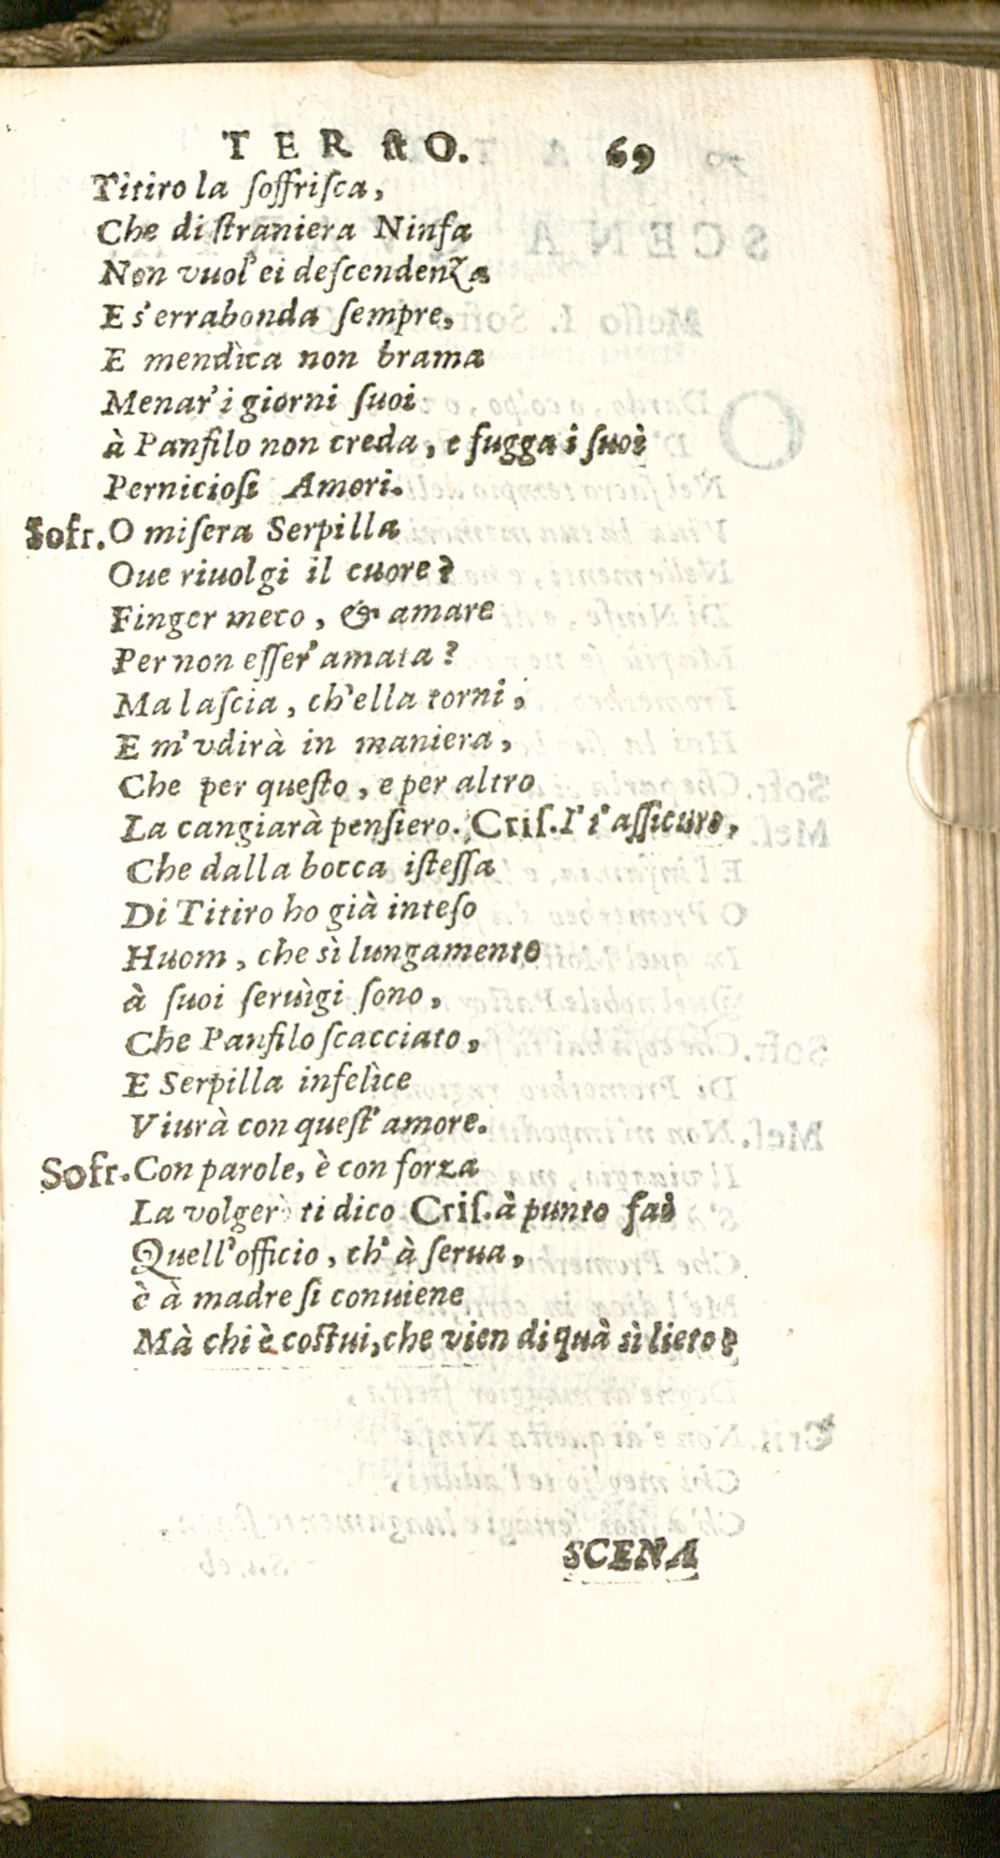 TERZO. 69
Titiro la soffrisca,
Che di straniera Ninfa
Non vuol' ei descendenza
E s'errabonda sempre,
E mendìca non brama
Menar' i giorni suoi
à Panfilo non creda, e fugga i suoi
Perniciosi Amori.
Sofr. O misera Serpilla
Oue riuolgi il cuore?
Finger meco, & amare
Per non esser' amata?
Ma lascia, ch'ella torni,
E m'vdirà in maniera,
Che per questo, e per altro
La cangiarà pensiero. Cris. I't'assicuro,
Che dalla bocca istessa
Di Titiro ho già inteso
Huom, che sì lungamente
à suoi seruìgi sono,
Che Panfilo scacciato,
E Serpilla infelìce
Viurà con quest' amore.
Sofr. Con parole, è con forza
La volgerò ti dico Cris. à punto fai
Quell'officio, ch' à serua,
è à madre si conuiene
Mà chi è costui, che vien di quà sì lieto?
SCENA